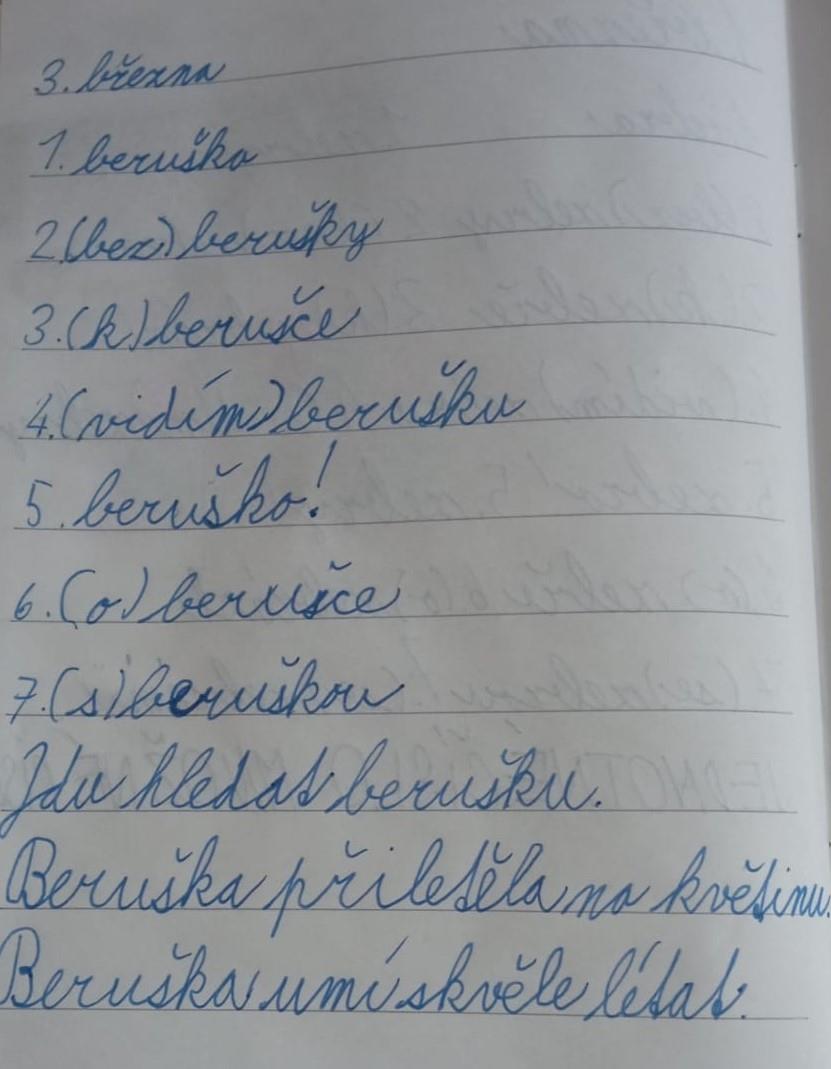 3. března
1. beruška
2.(bez) berušky
3.(k) berušce
4.(vidím) berušku
5. beruško!
6.(o) berušce
7.(s) beruškou
Jdu hledat berušku.
Beruška přiletěla na květinu.
Beruška umí skvěle létat.